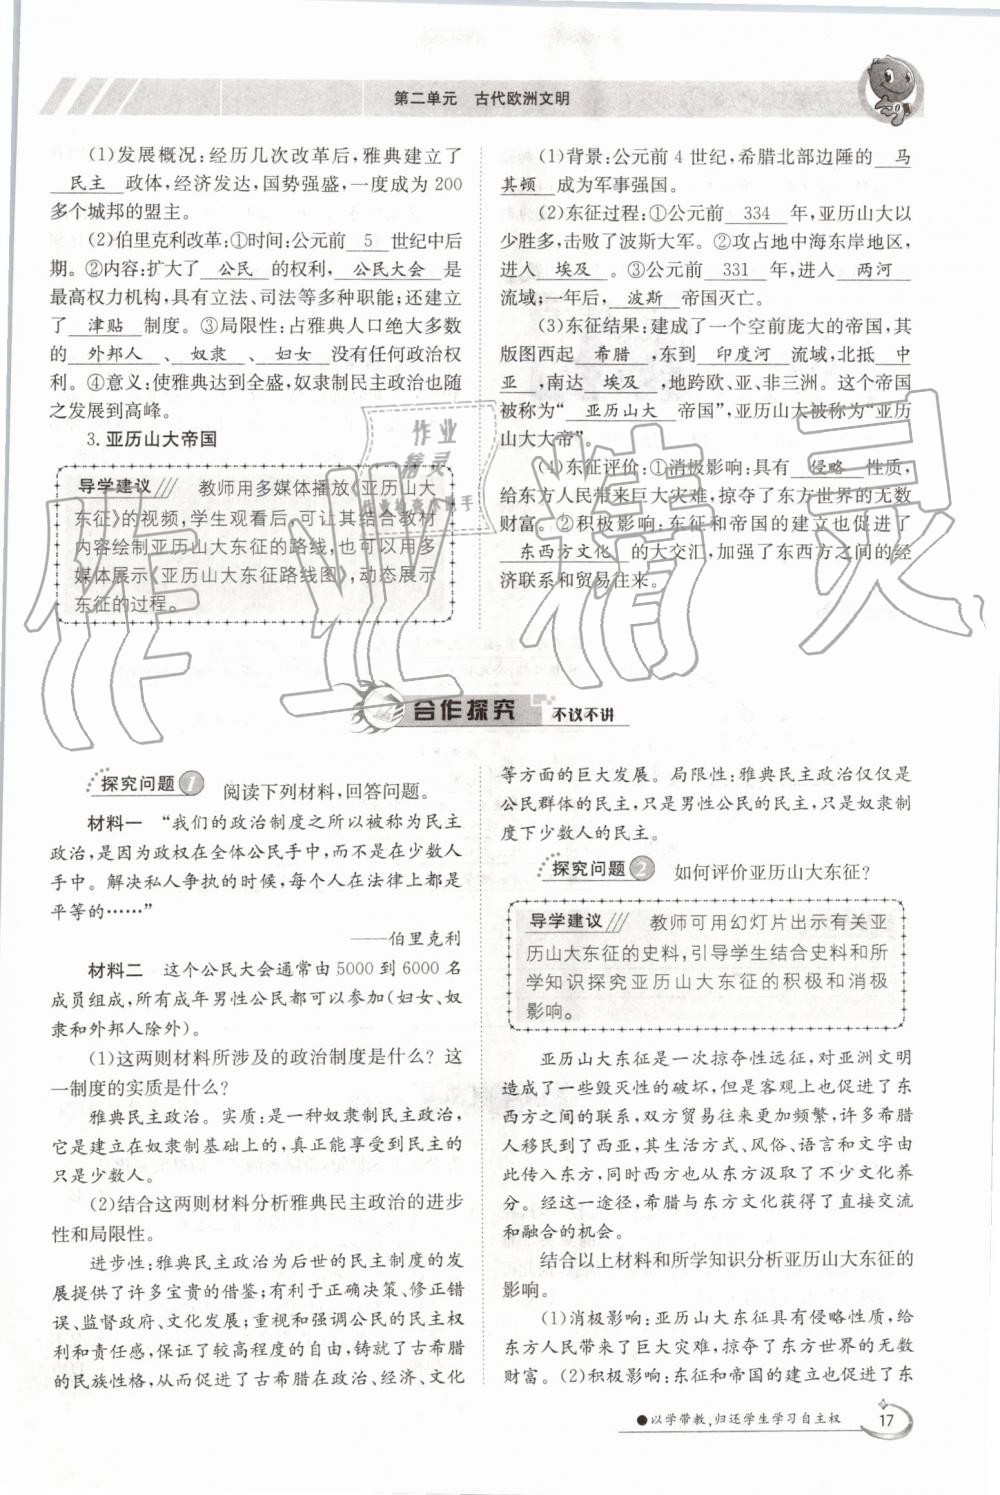 第二单元　古代欧洲文明
(1)发展概况:经历几次改革后,雅典建立了
民主 政体,经济发达,国势强盛,一度成为 200
多个城邦的盟主。
(2)伯里克利改革:①时间:公元前 5 世纪中后
期。②内容:扩大了 公民 的权利, 公民大会 是
最高权力机构,具有立法、司法等多种职能;还建立
了 津贴 制度。③局限性:占雅典人口绝大多数
的 外邦人 、 奴隶 、 妇女 没有任何政治权
利。④意义:使雅典达到全盛,奴隶制民主政治也随
之发展到高峰。
3. 亚历山大帝国
导学建议 教师用多媒体播放《亚历山大
东征》的视频,学生观看后,可让其结合教材
内容绘制亚历山大东征的路线,也可以用多
媒体展示《亚历山大东征路线图》,动态展示
东征的过程。
(1)背景:公元前 4 世纪,希腊北部边陲的 马
其顿 成为军事强国。
(2)东征过程:①公元前 334 年,亚历山大以
少胜多,击败了波斯大军。②攻占地中海东岸地区,
进入 埃及 。③公元前 331 年,进入 两河
流域;一年后, 波斯 帝国灭亡。
(3)东征结果:建成了一个空前庞大的帝国,其
版图西起 希腊 ,东到 印度河 流域,北抵 中
亚 ,南达 埃及 ,地跨欧、亚、非三洲。这个帝国
被称为“ 亚历山大 帝国”,亚历山大被称为“亚历
山大大帝”。
(4)东征评价:①消极影响:具有 侵略 性质,
给东方人民带来巨大灾难,掠夺了东方世界的无数
财富。②积极影响:东征和帝国的建立也促进了
东西方文化 的大交汇,加强了东西方之间的经
济联系和贸易往来。
作业
精灵
作业检查小助手
作业精灵
合作探究 不议不讲
探究问题 1 阅读下列材料,回答问题。
材料一 “我们的政治制度之所以被称为民主
政治,是因为政权在全体公民手中,而不是在少数人
手中。解决私人争执的时候,每个人在法律上都是
平等的……”
——伯里克利
材料二 这个公民大会通常由 5000 到 6000 名
成员组成,所有成年男性公民都可以参加(妇女、奴
隶和外邦人除外)。
(1)这两则材料所涉及的政治制度是什么？这
一制度的实质是什么?
雅典民主政治。实质:是一种奴隶制民主政治,
它是建立在奴隶制基础上的,真正能享受到民主的
只是少数人。
(2)结合这两则材料分析雅典民主政治的进步
性和局限性。
进步性:雅典民主政治为后世的民主制度的发
展提供了许多宝贵的借鉴;有利于正确决策、修正错
误、监督政府、文化发展;重视和强调公民的民主权
利和责任感,保证了较高程度的自由,铸就了古希腊
的民族性格,从而促进了古希腊在政治、经济、文化
等方面的巨大发展。局限性:雅典民主政治仅仅是
公民群体的民主,只是男性公民的民主,只是奴隶制
度下少数人的民主。
探究问题 2 如何评价亚历山大东征?
导学建议 教师可用幻灯片出示有关亚
历山大东征的史料,引导学生结合史料和所
学知识探究亚历山大东征的积极和消极
影响。
亚历山大东征是一次掠夺性远征,对亚洲文明
造成了一些毁灭性的破坏,但是客观上也促进了东
西方之间的联系,双方贸易往来更加频繁,许多希腊
人移民到了西亚,其生活方式、风俗、语言和文字由
此传入东方,同时西方也从东方汲取了不少文化养
分。经这一途径,希腊与东方文化获得了直接交流
和融合的机会。
结合以上材料和所学知识分析亚历山大东征的
影响。
(1)消极影响:亚历山大东征具有侵略性质,给
东方人民带来了巨大灾难,掠夺了东方世界的无数
财富。(2)积极影响:东征和帝国的建立也促进了东
●以学带教,归还学生学习自主权
17